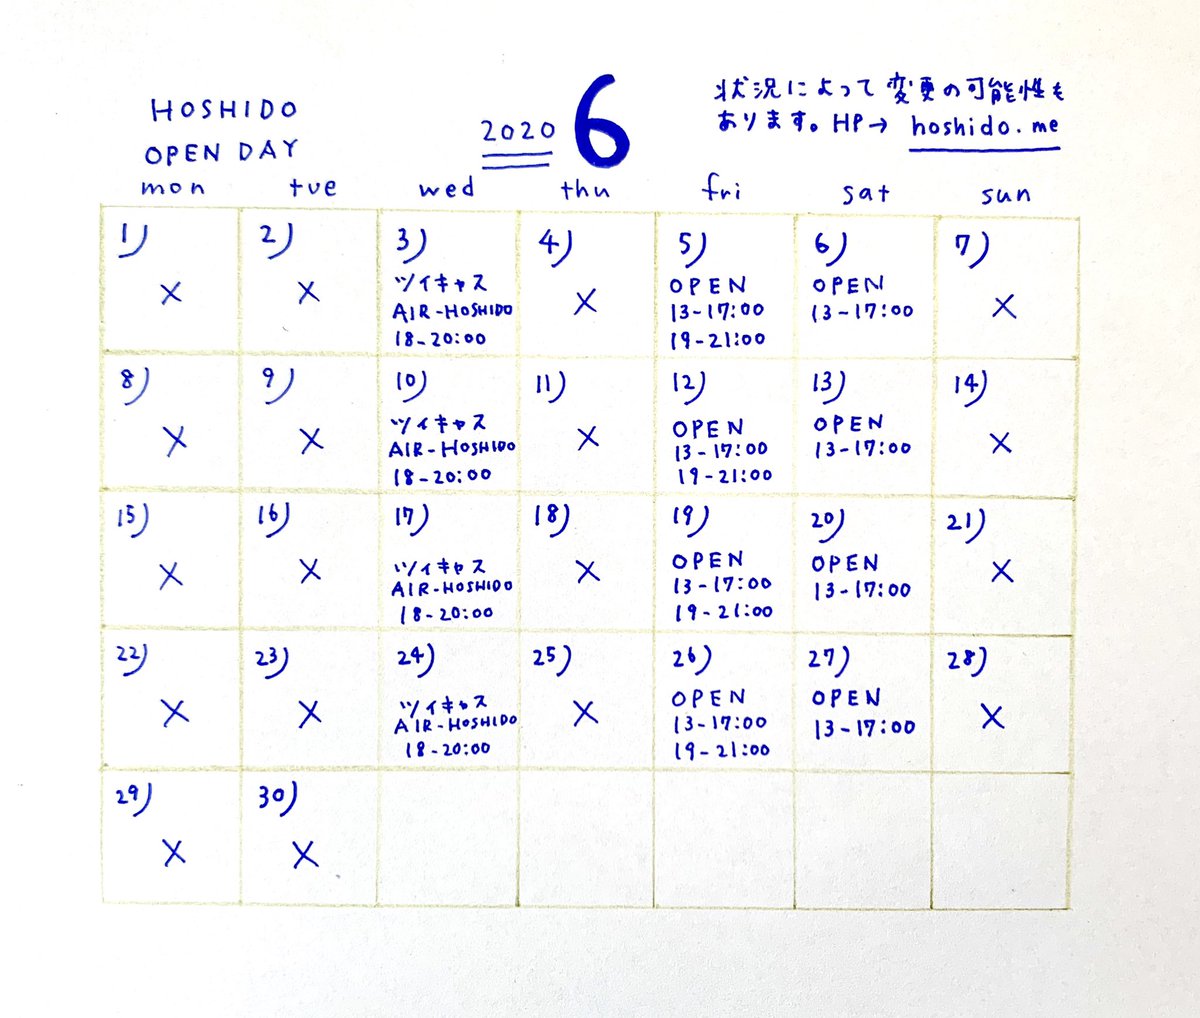 HOSHIDO
OPEN DAY
2020 6
状況によって変更の可能性も
あります。HP→ hoshido.me
mon tue wed thu fri sat sun
1) 2) 3) 4) 5) 6) 7)
× × ツイキャス × OPEN OPEN ×
AIR-HOSHIDO 13-17:00 13-17:00
18-20:00 19-21:00
8) 9) 10) 11) 12) 13) 14)
× × ツイキャス × OPEN OPEN ×
AIR-HOSHIDO 13-17:00 13-17:00
18-20:00 19-21:00
15) 16) 17) 18) 19) 20) 21)
× × ツイキャス × OPEN OPEN ×
AIR-HOSHIDO 13-17:00 13-17:00
18-20:00 19-21:00
22) 23) 24) 25) 26) 27) 28)
× × ツイキャス × OPEN OPEN ×
AIR-HOSHIDO 13-17:00 13-17:00
18-20:00 19-21:00
29) 30)
× ×